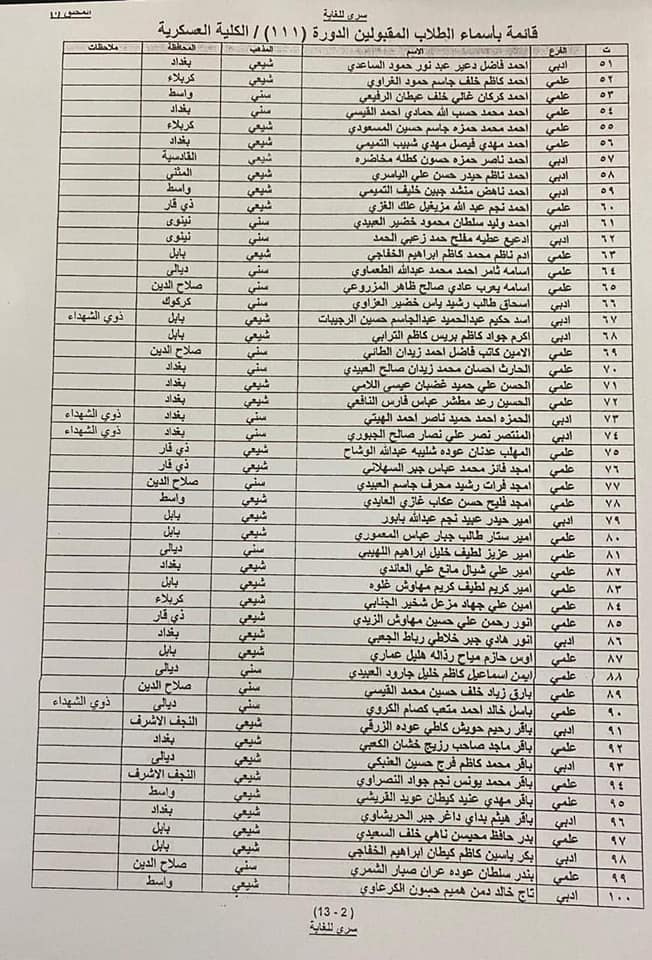 سري للغاية
قائمة بأسماء الطلاب المقبولين الدورة (١١١) / الكلية العسكرية
ت الفرع الاسم المذهب المحافظة ملاحظات
٥١ ادبي احمد فاضل دعير عبد نور حمود الساعدي شيعي بغداد
٥٢ علمي احمد كاظم خلف جاسم حمود الغراوي شيعي كربلاء
٥٣ علمي احمد كركان غالي خلف عبطان الرفيعي سني واسط
٥٤ علمي احمد محمد حسب الله حمادي احمد القيسي سني بغداد
٥٥ علمي احمد محمد حمزه جاسم حسين المسعودي شيعي كربلاء
٥٦ علمي احمد مهدي فيصل مهدي شبيب التميمي شيعي بغداد
٥٧ ادبي احمد ناصر حمزه حسون كطله مخاضره شيعي القادسية
٥٨ ادبي احمد ناظم حيدر حسن علي الياسري شيعي المثنى
٥٩ ادبي احمد ناهض منشد جبين خليف التميمي شيعي واسط
٦٠ علمي احمد نجم عبد الله مزيغيل علك الغزي شيعي ذي قار
٦١ ادبي احمد وليد سلطان محمود خضير العبيدي سني نينوى
٦٢ ادبي ادعيع عطيه مفلح حمد زعبي الحمد سني نينوى
٦٣ علمي ادم ناظم محمد كاظم ابراهيم الخفاجي شيعي بابل
٦٤ علمي اسامه ثامر احمد محمد عبدالله الطعماوي سني ديالى
٦٥ علمي اسامه يعرب عادي صالح ظاهر المزروعي سني صلاح الدين
٦٦ ادبي اسحاق طالب رشيد ياس خضير العزاوي سني كركوك
٦٧ ادبي اسد حكيم عبدالحميد عبدالجاسم حسين الرجيبات شيعي بابل ذوي الشهداء
٦٨ ادبي اكرم جواد كاظم بريس كاظم الترابي شيعي بابل
٦٩ علمي الامين كاتب فاضل احمد زيدان الطائي سني صلاح الدين
٧٠ علمي الحارث احسان محمد زيدان صالح العبيدي سني بغداد
٧١ علمي الحسن علي حميد غضبان عيسى اللامي شيعي بغداد
٧٢ علمي الحسين رعد مطشر عباس فارس النافعي شيعي بغداد
٧٣ ادبي الحمزه احمد حميد ناصر احمد الهيتي سني بغداد ذوي الشهداء
٧٤ ادبي المنتصر نصر علي نصار صالح الجبوري سني بغداد ذوي الشهداء
٧٥ علمي المهلب عدنان عوده شليبه عبدالله الوشاح شيعي ذي قار
٧٦ علمي امجد فائز محمد عباس جبر السهلاني شيعي ذي قار
٧٧ علمي امجد فرات رشيد محرف جاسم العبيدي سني صلاح الدين
٧٨ علمي امجد فليح حسن عكاب غازي العابدي شيعي واسط
٧٩ ادبي امير حيدر عبيد نجم عبدالله بابور شيعي بابل
٨٠ علمي امير ستار طالب جبار عباس المعموري شيعي بابل
٨١ علمي امير عزيز لطيف خليل ابراهيم اللهيبي سني ديالى
٨٢ علمي امير علي شيال مانع علي العائدي شيعي بغداد
٨٣ علمي امير كريم لطيف كريم مهاوش غلوه شيعي بابل
٨٤ علمي امين علي جهاد مزعل شخير الجنابي شيعي كربلاء
٨٥ علمي انور رحمن علي حسين مهاوش الزيدي شيعي ذي قار
٨٦ ادبي انور هادي جبر خلاطي رباط الجعبي شيعي بغداد
٨٧ علمي اوس حازم مياح رذاله هليل عماري شيعي بابل
٨٨ علمي ايمن اسماعيل كاظم خليل جارود العبيدي سني ديالى
٨٩ علمي بارق زياد خلف حسين محمد القيسي سني صلاح الدين
٩٠ علمي باسل خالد احمد متعب كصام الكروي سني ديالى ذوي الشهداء
٩١ ادبي باقر رحيم حويش كاطي عوده الزرقي شيعي النجف الاشرف
٩٢ علمي باقر ماجد صاحب رزيج خشان الكعبي شيعي بغداد
٩٣ ادبي باقر محمد كاظم فرج حسين العنبكي شيعي ديالى
٩٤ علمي باقر محمد يونس نجم جواد النصراوي شيعي النجف الاشرف
٩٥ علمي باقر مهدي عنيد كيطان عويد القريشي شيعي واسط
٩٦ ادبي باقر هيثم بداي داغر جبر الحريشاوي شيعي بغداد
٩٧ علمي بدر حافظ محيسن ناهي خلف السعيدي شيعي بابل
٩٨ ادبي بكر ياسين كاظم كيطان ابراهيم الخفاجي شيعي بابل
٩٩ علمي بندر سلطان عوده عران صبار الشمري سني صلاح الدين
١٠٠ ادبي تاج خالد دمن هميم حسون الكرعاوي شيعي واسط
(13 - 2)
سري للغاية